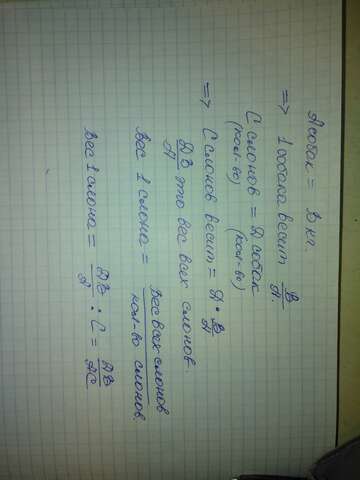 А собак = В кг.
=> 1 собака весит В/А.
С слонов = Д собак
(кол-во) (кол-во)
=> С слонов весит = Д · В/А
ДВ/А это вес всех слонов.
Вес 1 слона = Вес всех слонов/кол-во слонов.
Вес 1 слона = ДВ/А : С = ДВ/АС